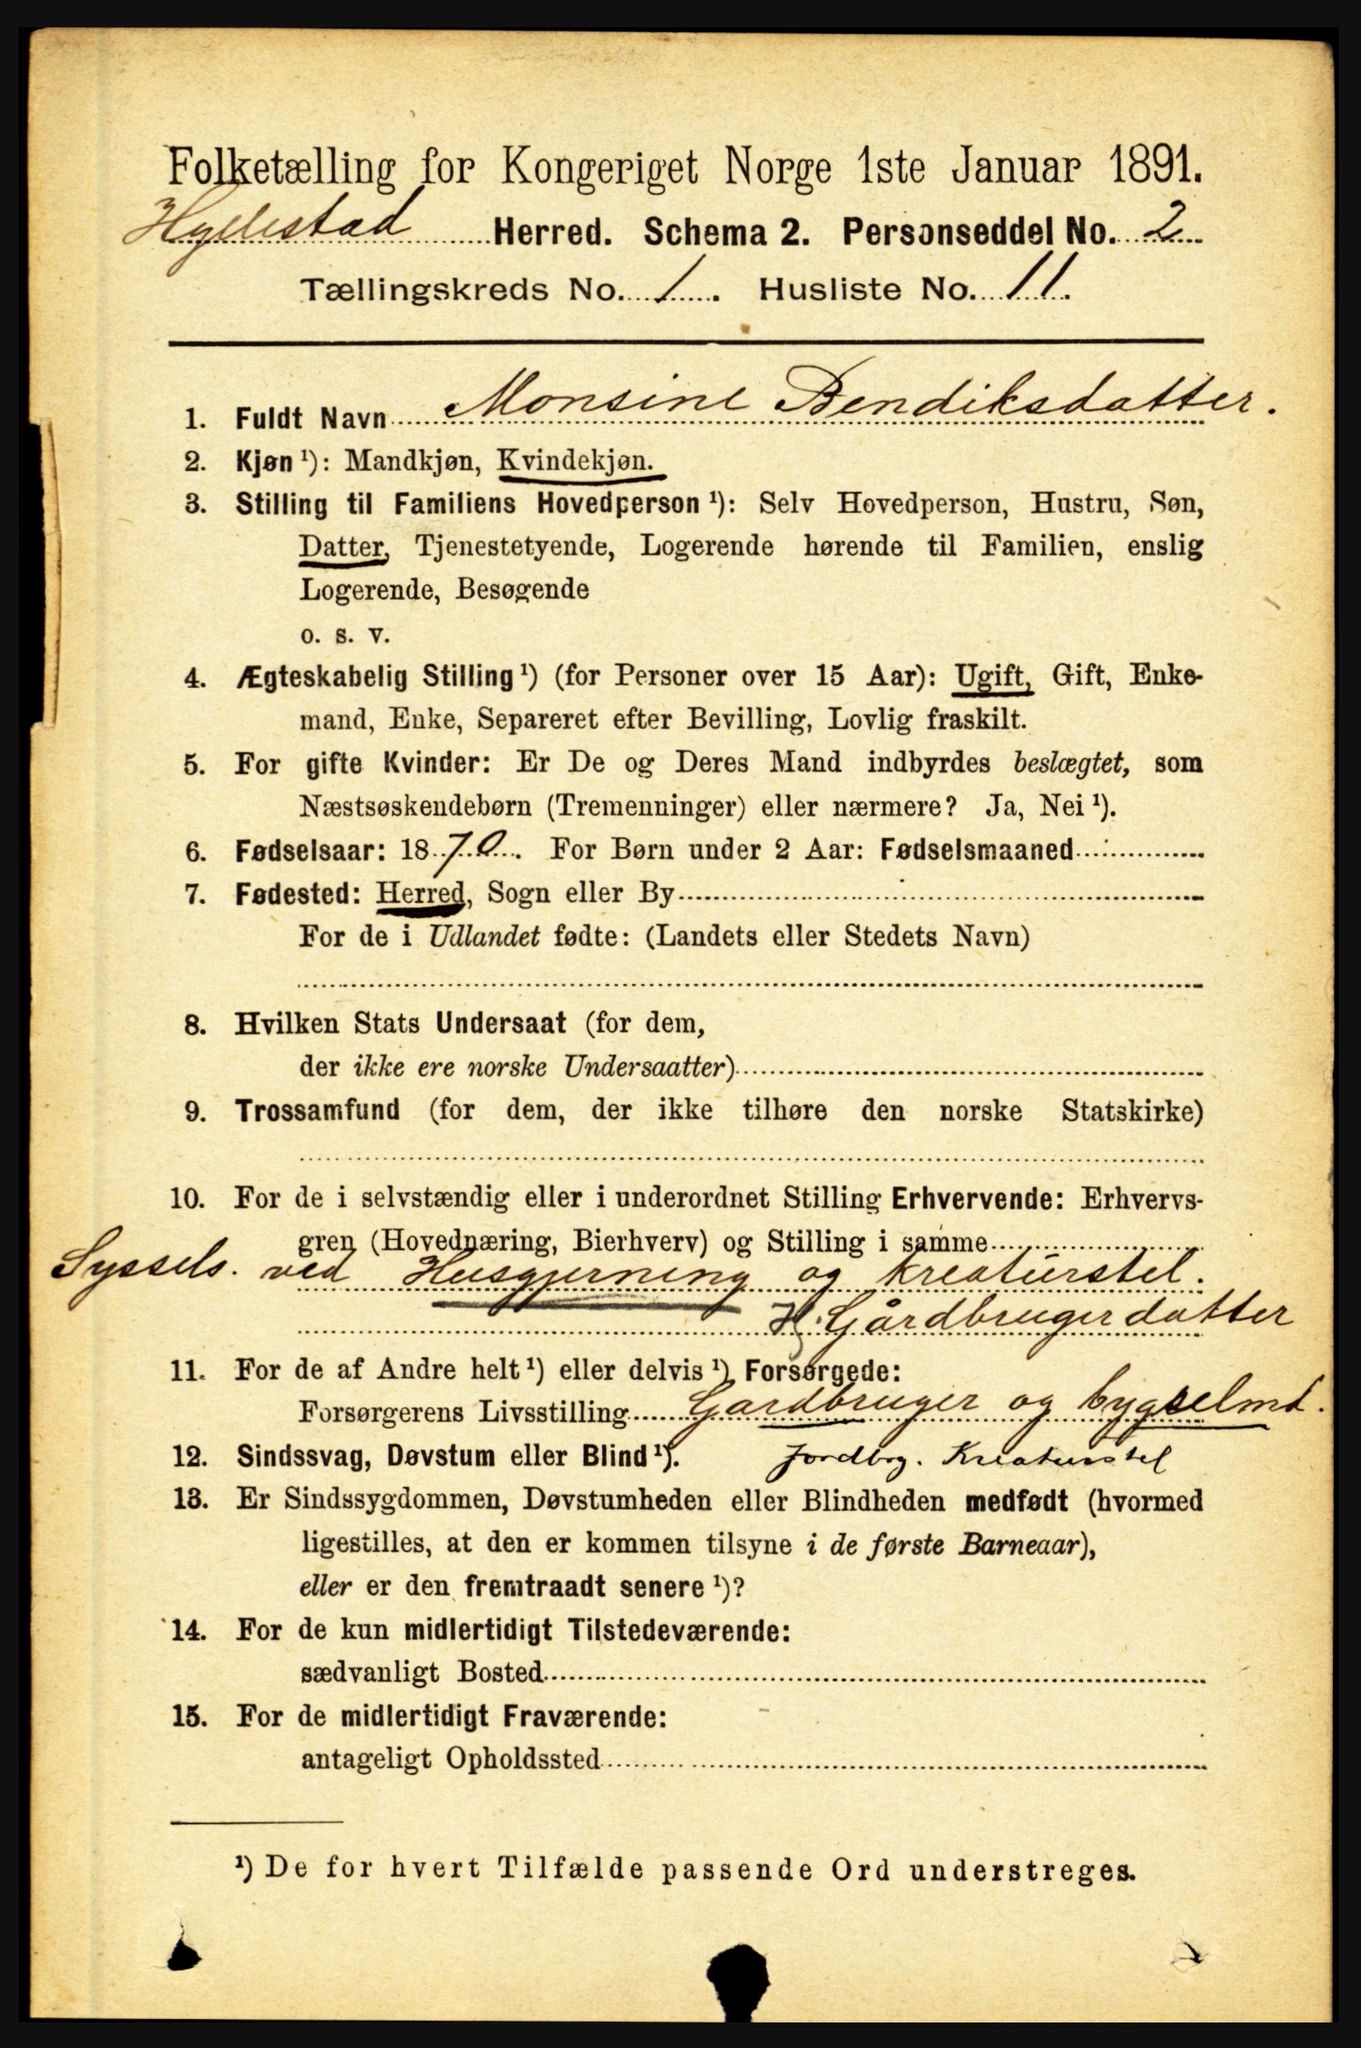 Folketælling for Kongeriget Norge 1ste Januar 1891.
Hyllestad Herred. Schema 2. Personseddel No. 2
Tællingskreds No. 1. Husliste No. 11.
1. Fuldt Navn Monsine Bendiksdatter.
2. Kjøn ¹): Mandkjøn, Kvindekjøn.
3. Stilling til Familiens Hovedperson ¹): Selv Hovedperson, Hustru, Søn,
Datter, Tjenestetyende, Logerende hørende til Familien, enslig
Logerende, Besøgende
o. s. v.
4. Ægteskabelig Stilling ¹) (for Personer over 15 Aar): Ugift, Gift, Enke-
mand, Enke, Separeret efter Bevilling, Lovlig fraskilt.
5. For gifte Kvinder: Er De og Deres Mand indbyrdes beslægtet, som
Næstsøskendebørn (Tremenninger) eller nærmere? Ja, Nei ¹).
6. Fødselsaar: 1870. For Børn under 2 Aar: Fødselsmaaned
7. Fødested: Herred, Sogn eller By
For de i Udlandet fødte: (Landets eller Stedets Navn)
8. Hvilken Stats Undersaat (for dem,
der ikke ere norske Undersaatter)
9. Trossamfund (for dem, der ikke tilhøre den norske Statskirke)
10. For de i selvstændig eller i underordnet Stilling Erhvervende: Erhvervs-
gren (Hovednæring, Bierhverv) og Stilling i samme
Syssels. ved Husgjerning og kreaturstel.
H. Gårdbrugerdatter
11. For de af Andre helt ¹) eller delvis ¹) Forsørgede:
Forsørgerens Livsstilling Gardbruger og bygselmd.
12. Sindssvag, Døvstum eller Blind ¹). Jordbrg. Kreaturstel
13. Er Sindssygdommen, Døvstumheden eller Blindheden medfødt (hvormed
ligestilles, at den er kommen tilsyne i de første Barneaar),
eller er den fremtraadt senere ¹)?
14. For de kun midlertidigt Tilstedeværende:
sædvanligt Bosted
15. For de midlertidigt Fraværende:
antageligt Opholdssted
¹) De for hvert Tilfælde passende Ord understreges.